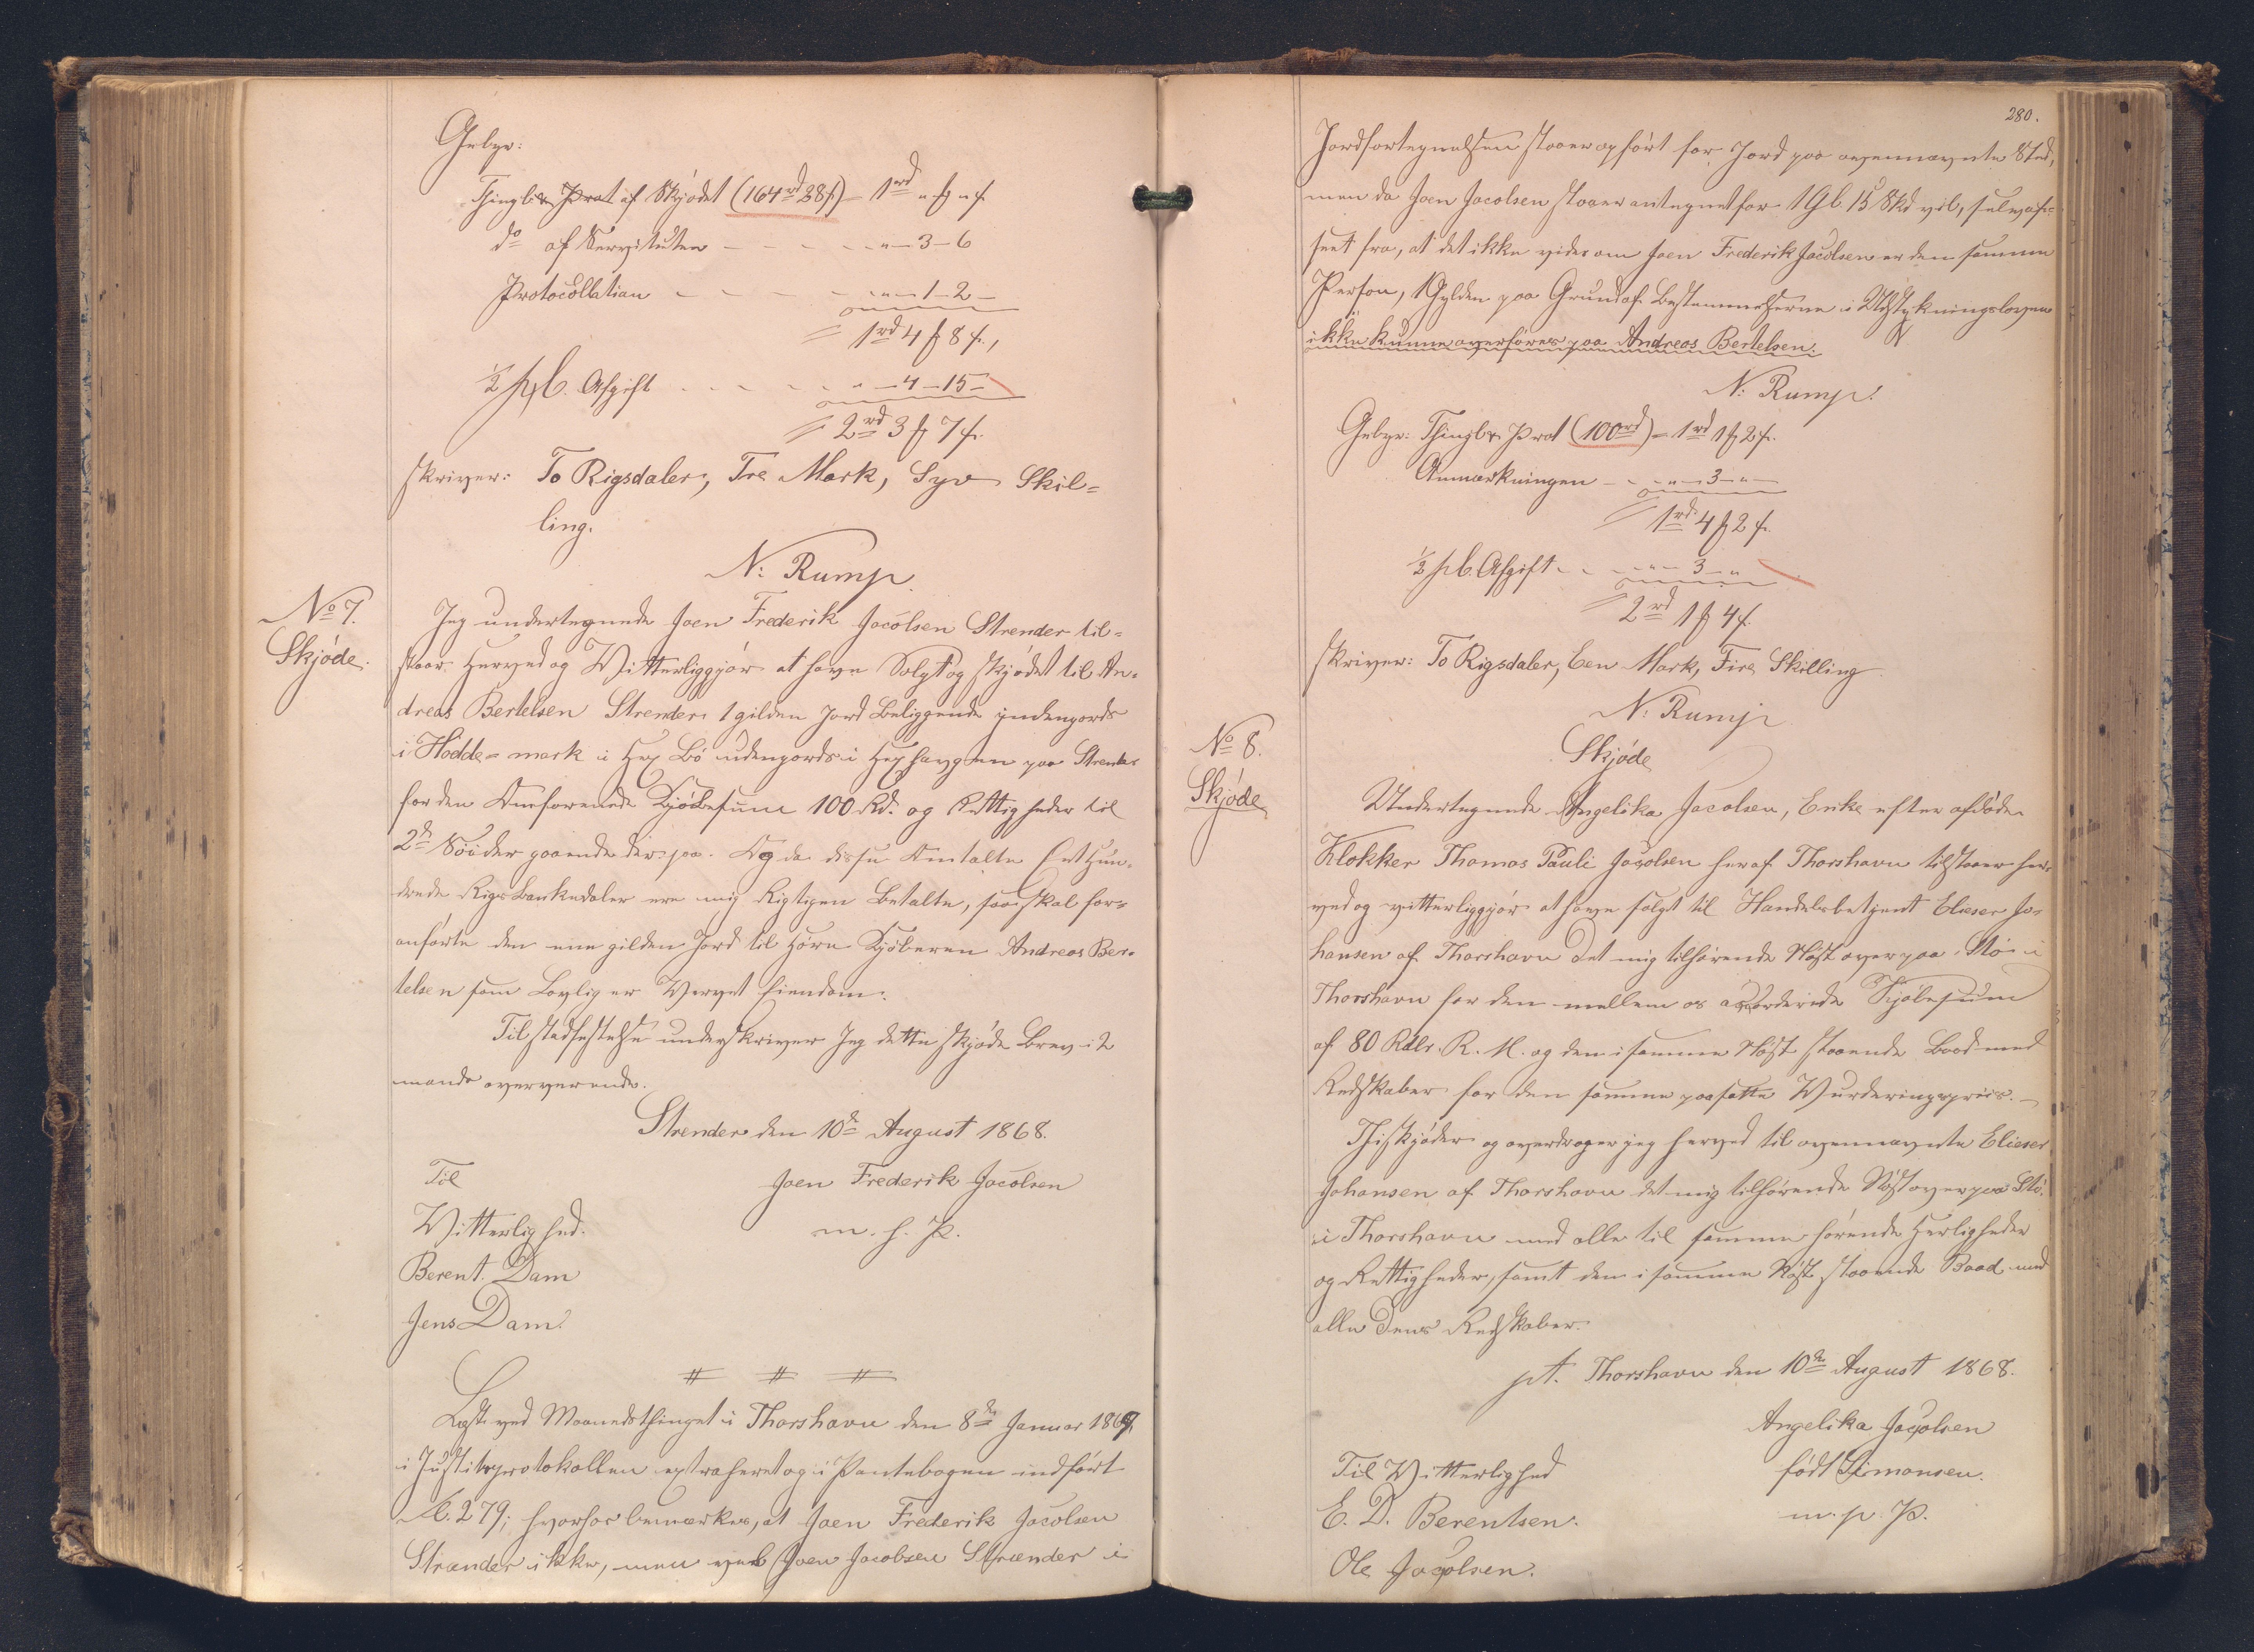 Gebyr:
Thingl. & Prot af Skjödet (164rd 28ß) = 1rd " ꝉ " ß
do af Servituten - - - - " - 3 - 6
Protocollation - - - - " - 1 - 2 -
= 1rd 4 ꝉ 8 ß,
1/2 pCt. Afgift - - - - " - 4 - 15 -
= 2rd 3 ꝉ 7 ß.
skriver: To Rigsdaler, Tre Mark, Syv Skil=
ling.
N: Rump.
No 7.
Skjøde.
Jeg undertegnede Joen Frederik Jacobsen Strender til=
staar herved og Vitterliggjør at have Solgt og skjødet til An=
dreas Bertelsen Strender 1 gilden Jord beliggende indengords
i Hodde=mark i Bö udengords i paa Strender
for den Kjöbesum 100 Rd. og Rettigheder til
2de der paa. Og da disse Omtalte Et Hun=
drede Rigsbankdaler ere mig Rigtigen Betalte, saa skal for=
anførte den ene gilden Jord til høre Kjöberen Andreas Ber=
telsen som Lovlig er Vervet Eiendom.
Til stadfestelse underskriver Jeg dette skjøde Brev i 2
mands oververende.
Strender den 10de August 1868.
Til
Joen Frederik Jacobsen
Vitterlighed.
m. f. P.
Berent Dam
Jens Dam.
Læst ved Maanedsthinget i Thorshavn den 8de Januar 1869,
i Justitsprotokollen extraheret og i Pantebogen indført
Fol. 279; hvorhos bemærkes, at Joen Frederik Jacobsen
Strænder ikke, men vel Joen Jacobsen Strænder i
280.
Jordfortegnelsen staaer opført for Jord paa ovennævnte Sted,
men da Joen Jacobsen staaer antegnet for 1 Gl. 15 Skd vil, selv af=
seet fra, at det ikke vides om Joen Frederik Jacobsen er den samme
Person, 1 Gylden paa Grund af Bestemmelserne i Udstykningsloven
ikke kunne overføres paa Andreas Bertelsen.
N: Rump.
Gebyr: Thingl. & Prot (100rd) = 1rd 1 ꝉ 2 ß.
Anmærkningen - - " - 3 - " -
= 1rd 4 ꝉ 2 ß.
1/2 pCt. Afgift - - " - 3 - "
= 2rd 1 ꝉ 4 ß.
skriver: To Rigsdaler, Een Mark, Fire Skilling
N: Rump
No 8.
Skjøde
Skjøde
Undertegnede Angelika Jacobsen, Enke efter afdøde
Klokker Thomas Pauli Jacobsen her af Thorshavn tilstaaer her=
ved og vitterliggjør at have solgt til Handelsbetjent Elieser Jo=
hansen af Thorshavn det mig tilhørende Nøst over paa Stö i
Thorshavn for den mellem os accorderede Kjöbesum
af 80 Rdlr. R. M. og den i samme Nøst staaende Baad med
Redskaber for den samme paasatte Vurderingspriis. -
Thi skjøder og overdrager jeg herved til ovennævnte Elieser
Johansen af Thorshavn det mig tilhørende Nøst over paa Stö
i Thorshavn med alle til samme hørende Herligheder
og Rettigheder, samt den i samme Nøst staaende Baad med
alle dens Redskaber.
pt. Thorshavn den 10de August 1868.
Angelika Jacobsen
Til Vitterlighed
født Simonsen.
E. D. Berentsen.
m. p. P.
Ole Jacobsen.